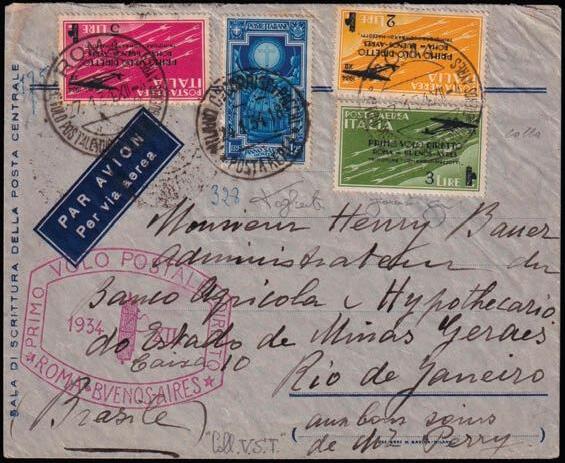 SALA DI SCRITTURA DELLA POSTA CENTRALE
5 LIRE
PRIMO VOLO DIRETTO
ROMA = BUENOS-AYRES
POSTA AEREA
ITALIA
POSTE ITALIANE
2 LIRE
PRIMO VOLO DIRETTO
ROMA = BUENOS-AYRES
POSTA AEREA
ITALIA
POSTA AEREA
ITALIA
PRIMO VOLO DIRETTO
ROMA = BUENOS-AYRES
3 LIRE
MILANO
POSTA AEREA
PAR AVION
Per via aerea
328
colla
PRIMO VOLO POSTALE DIRETTO
1934 XII
ROMA-BVENOS AIRES
Monsieur Henry Bauer
Administrateur du
Banco Agricola e Hypothecario
do Estado de Minas Geraes
Caixa 10
Rio de Janeiro
(Brasile)
aux bon soins
de Mr Perry.
"Coll. V.S.T."